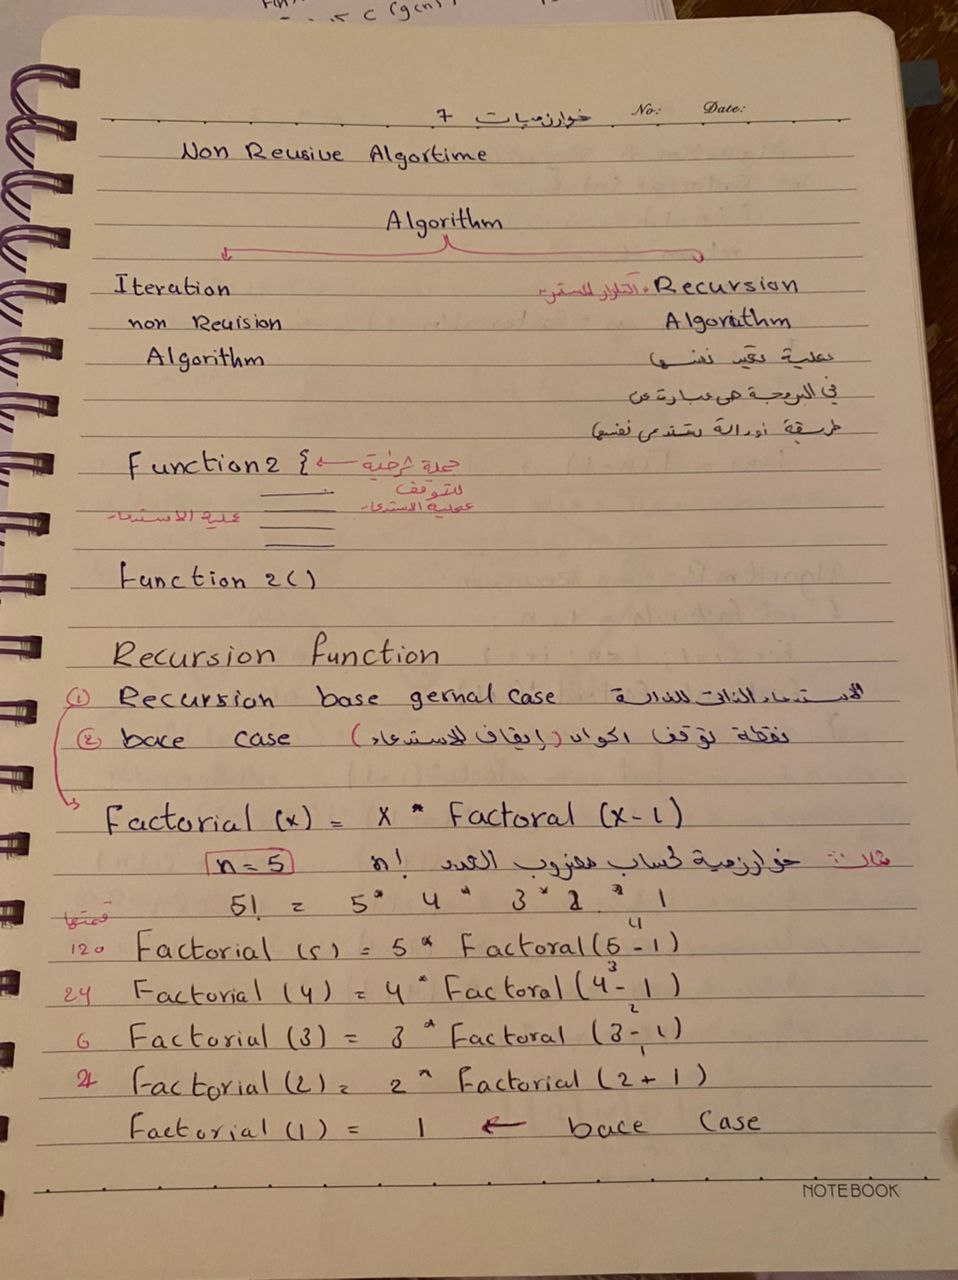 خوارزميات 7 No: Date:
Non Reusive Algortime
Algorithm
Iteration
non Reuision
Algorithm
Recursion
Algorithm
عملية تعيد نفسها
في البرمجة هي عبارة عن
طريقة أو دالة تستدعي نفسها
Function 2 { ← جملة شرطية
للتوقف
عملية الاستدعاء
عملية الاستدعاء
Function 2 ( )
Recursion function
① Recursion base gernal case الاستدعاء الذاتي للدالة
② bace case نقطة توقف (إيقاف الاستدعاء)
Factorial (x) = x * Factoral (x-1)
مثال: خوارزمية لحساب مضروب العدد n! n = 5
5! = 5 * 4 * 3 * 2 * 1
قيمتها
120 Factorial (5) = 5 * Factoral (5-1) 4
24 Factorial (4) = 4 * Factoral (4-1) 3
6 Factorial (3) = 3 * Factoral (3-1) 2
2 Factorial (2) = 2 * Factorial (2+1) 1
Factorial (1) = 1 ← bace Case
NOTEBOOK